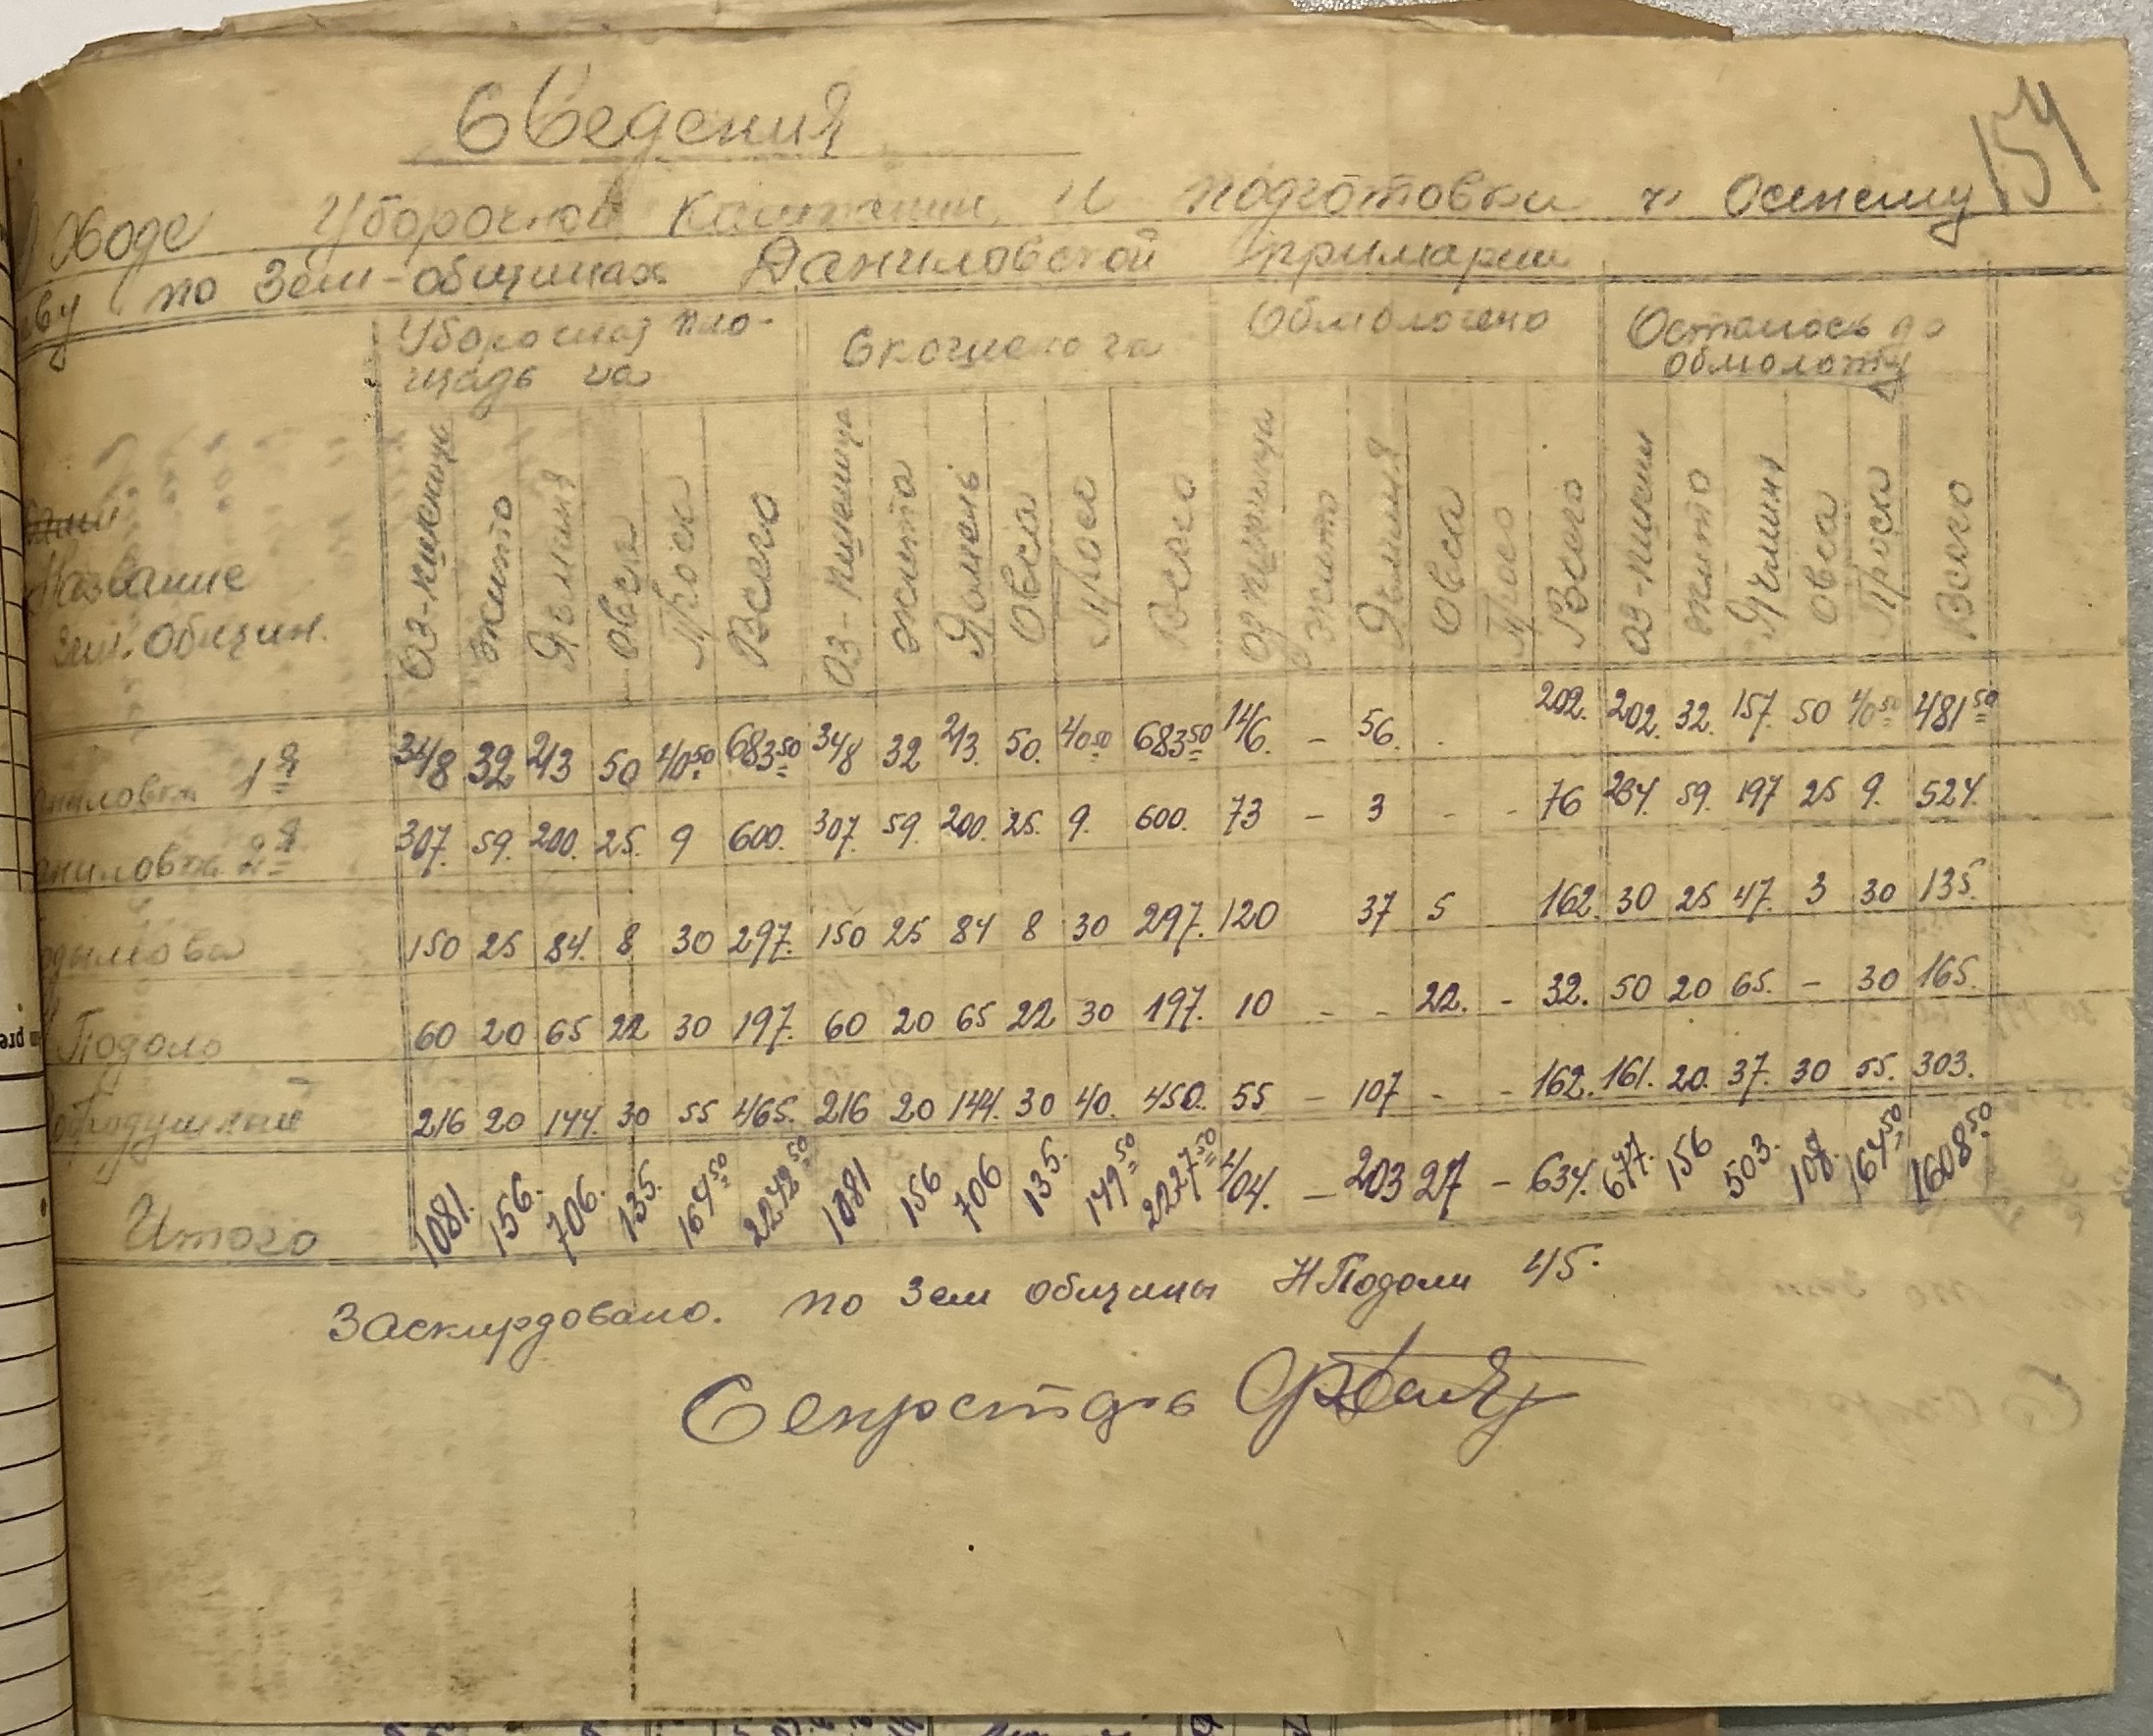 154
Сведения
О ходе Уборочной Кампании и подготовки к Осеннему
севу по Зем-общинах Даниловской Примарии
Название Зем. Общин.
Уборочная площадь га
Скошено га
Обмолочено
Осталось до обмолоту
Оз-пшеница жито Ячминя Овса Проса Всего Оз-пшеница жита Ячмень Овса Просо Всего Оз пшеница жито Ячминя Овса Просо Всего Оз-пшени жито Ячмин Овса Проса Всего
аниловка 1я 348 32 213 50 40.50 683.50 348 32 213. 50. 40.50 683.50 146. - 56. . 202. 202. 32. 157. 50 40.50 481.50
аниловка 2я 307. 59. 200. 25. 9 600. 307. 59. 200. 25. 9. 600. 73 - 3 - - 76 234. 59. 197 25 9. 524.
дымова 150 25 84. 8. 30 297. 150 25 84 8 30 297. 120 37 5 162. 30 25 47. 3 30 135.
Подоль 60 20 65 22 30 197. 60 20 65 22 30 197. 10 - - 22. - 32. 50 20 65. - 30 165.
216 20 144. 30 55 465. 216 20 144. 30 40. 450. 55 - 107 - - 162. 161. 20. 37. 30 55. 303.
Итого 1081. 156. 706. 135. 164.50 2242.50 1081 156 706 135. 149.50 2227.50 404. - 203 27 - 634. 677. 156 503. 108. 164.50 1608.50
Заскирдовано. по Зем общины Н Подоли 45.
Секретарь